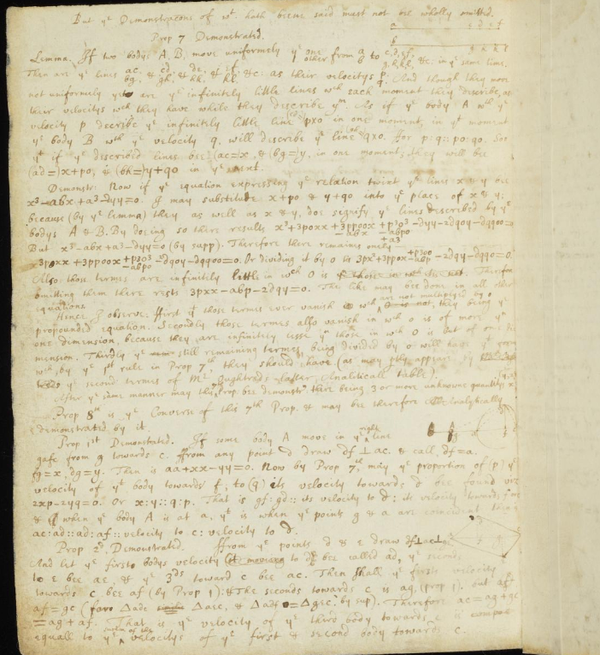 But yᵉ Demonstracons of wᵗ hath beene said must not bee wholly omitted.
Prop 7 Demonstrated.
Lemma. If two bodys A, B, move uniformely yᵉ one/other from g to c,d,e,f, / g,h,k,l, &c in yᵉ same time.
Then are yᵉ lines ac/bg, & cd/gh, & de/hk, & ef/kl &c as their velocitys p/q. And though they move
not uniformely yet are yᵉ infinitely little lines wᶜʰ each moment they describe, as
their velocitys wᶜʰ they have while they describe yᵐ. As if yᵉ body A wᵗʰ yᵉ
velocity p describe yᵉ infinitely little line o in one moment, in yᵗ moment
yᵉ body B wᵗʰ yᵉ velocity q will describe yᵉ line. For p:q::po:qo. Soe
yᵗ if yᵉ described lines bee (ac=x, & (bg=)y, in one moment, they will bee
(ad=)x+po, & (bh=)y+qo in yᵉ next.
Demonstr: Now if yᵉ equation expressing yᵉ relation twixt yᵉ lines x & y bee
x³-abx+a³-dyy=0. I may substitute x+po & y+qo into yᵉ place of x & y;
because (by yᵉ lemma) they as well as x & y, doe signify yᵉ lines described by yᵉ
bodys A & B. By doeing so there results x³+3poxx+3ppoox+p³o³-dyy-2dqoy-dqqoo=0 -abx -abpo +a³
But x³-abx+a³-dyy=0 (by supp). Therefore there remaines onely
3poxx+3ppoox+p³o³-2dqoy-dqqoo=0. -abpo Or dividing it by o tis 3pxx+3ppox+p³oo-2dqy-dqqo=0. -abp
Also those termes are infinitely little in wᶜʰ o is. Therefore
omitting them there rests 3pxx-abp-2dqy=0. The like may bee done in all other
equations.
Hence I observe. First yᵗ those termes ever vanish wᶜʰ are not multiplyed by o, they being yᵉ
propounded equation. Secondly those termes also vanish in wᶜʰ o is of more yⁿ
one dimension, because they are infinitely lesse yⁿ those in wᶜʰ o is but of one di-
mension. Thirdly yᵉ still remaining termes, being divided by o will have yᵉ form
wᶜʰ, by yᵉ 1ˢᵗ rule in Prop 7ᵗʰ, they should have (as may partly appeare by
yᵉ second termes of Mʳ Oughtreds latter Analiticall table).
After yᵉ same manner may this Prop bee demonstrᵈ there being 3 or more unknowne quantitys x
Prop 8ᵗʰ is yᵉ Converse of this 7ᵗʰ Prop. & may bee therefore Analytically
demonstrated by it.
Prop 1ˢᵗ Demonstrated. If some body A move in yᵉ right line
gafc from g towards c. From any point d draw df⊥ac. & call, df=a.
fg=x, dg=y. Then is aa+xx-yy=0. Now by Prop 7ᵗʰ, may yᵉ proportion of (p) yᵉ
velocity of yᵉ body towards f, to (q) its velocity towards d bee found viz:
2xp-2yq=0. Or x:y::q:p. That is gf:gd:: its velocity to d: its velocity towards f
& when yᵉ body A is at a, yᵗ is when yᵉ points g & a are coincident then is
ac:ad::ad:af::velocity to c: velocity to d.
Prop 2ᵈ. Demonstrated. From yᵉ points d & e draw df⊥ac⊥
And let yᵉ firsts bodys velocity to d bee called ad, yᵉ seconds
to e bee ae, & yᵉ 3ᵈˢ toward c bee ac. Then shall yᵉ firsts velocity
towards c bee af (by Prop 1); & The seconds towards c is ag, (prop 1). but af
af=gc (for △adc = △aec, & △adf=△gec, by sup). Therefore ac=ag+gc
=ag+af. That is yᵉ velocity of yᵉ third body towards c is
equall to yᵉ summ of the velocitys of yᵉ first & second body towards c.